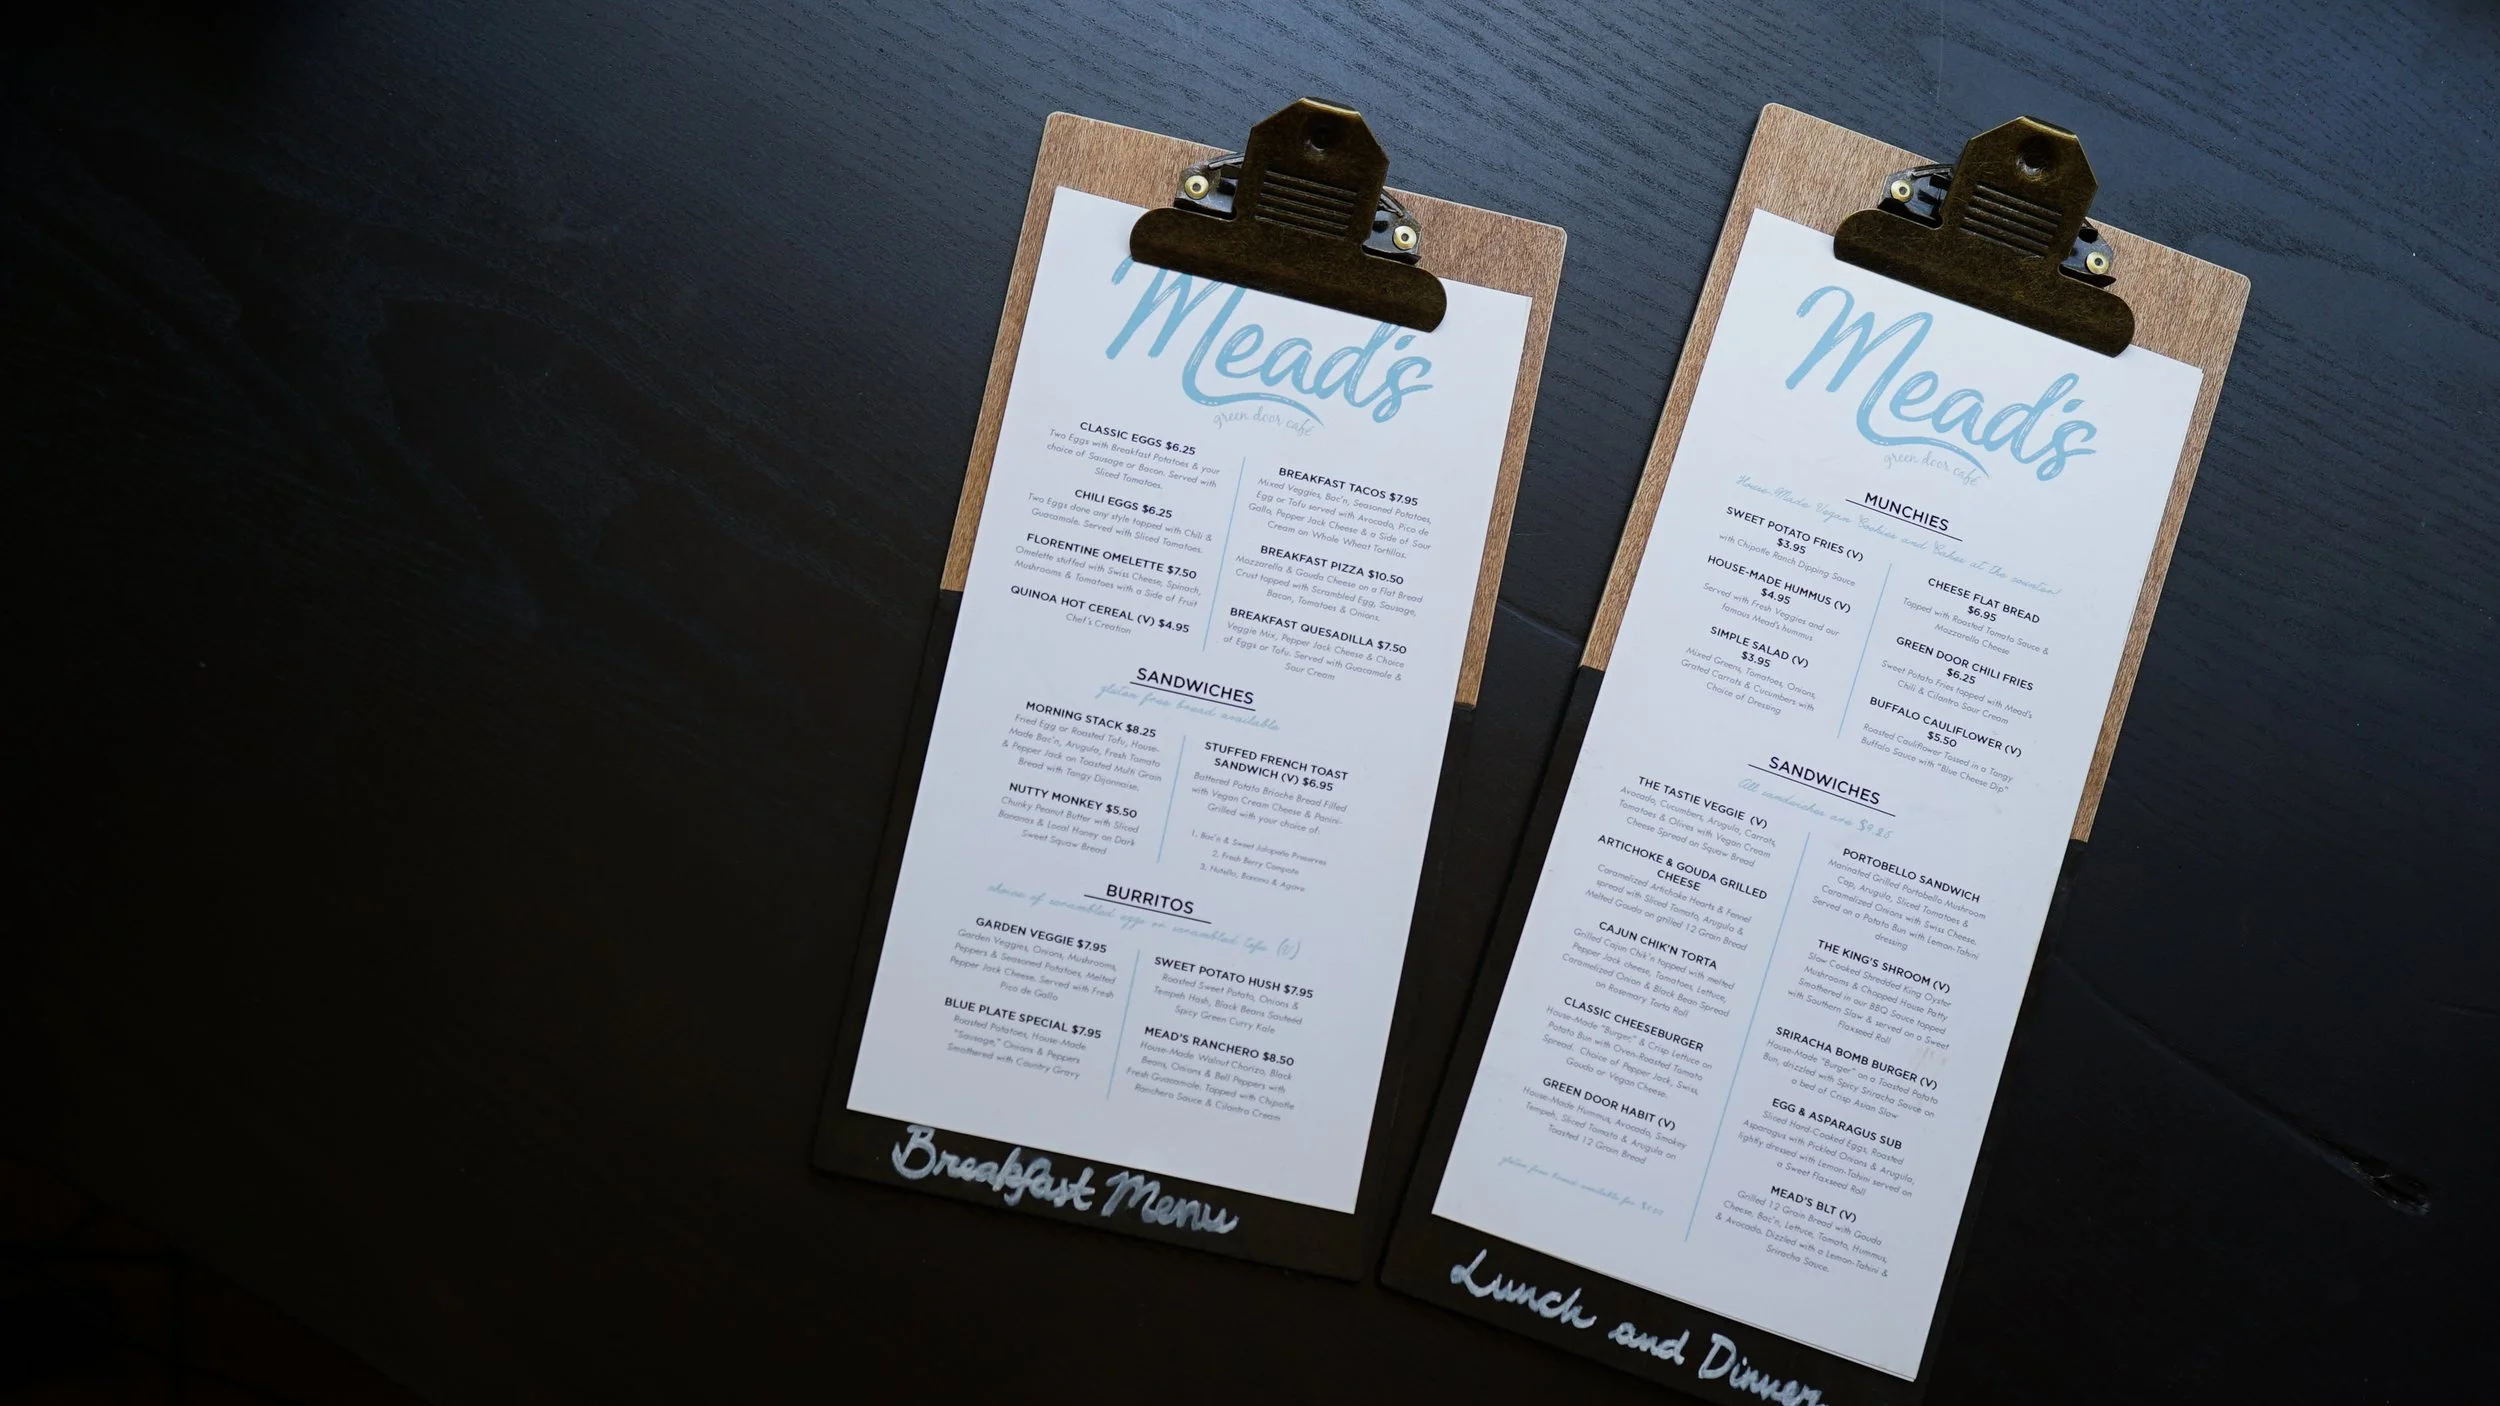 Mead's
green door café
CLASSIC EGGS $6.25
Two Eggs with Breakfast Potatoes & your
choice of Sausage or Bacon. Served with
Sliced Tomatoes.
CHILI EGGS $6.25
Two Eggs done any style topped with Chili &
Guacamole. Served with Sliced Tomatoes.
FLORENTINE OMELETTE $7.50
Omelette stuffed with Swiss Cheese, Spinach,
Mushrooms & Tomatoes with a Side of Fruit
QUINOA HOT CEREAL (V) $4.95
Chef's Creation
BREAKFAST TACOS $7.95
Mixed Veggies, Bac'n, Seasoned Potatoes,
Egg or Tofu served with Avocado, Pico de
Gallo, Pepper Jack Cheese & a Side of Sour
Cream on Whole Wheat Tortillas.
BREAKFAST PIZZA $10.50
Mozzarella & Gouda Cheese on a Flat Bread
Crust topped with Scrambled Egg, Sausage,
Bacon, Tomatoes & Onions.
BREAKFAST QUESADILLA $7.50
Veggie Mix, Pepper Jack Cheese & Choice
of Eggs or Tofu. Served with Guacamole &
Sour Cream
SANDWICHES
gluten free bread available
MORNING STACK $8.25
Fried Egg or Roasted Tofu, House-
Made Bac'n, Arugula, Fresh Tomato
& Pepper Jack on Toasted Multi Grain
Bread with Tangy Dijonnaise.
NUTTY MONKEY $5.50
Chunky Peanut Butter with Sliced
Bananas & Local Honey on Dark
Sweet Squaw Bread
STUFFED FRENCH TOAST
SANDWICH (V) $6.95
Battered Potato Brioche Bread Filled
with Vegan Cream Cheese & Panini-
Grilled with your choice of:
1. Bac'n & Sweet Jalapeño Preserves
2. Fresh Berry Compote
3. Nutella, Banana & Agave
BURRITOS
choice of scrambled eggs or scrambled tofu (V)
GARDEN VEGGIE $7.95
Garden Veggies, Onions, Mushrooms,
Peppers & Seasoned Potatoes, Melted
Pepper Jack Cheese. Served with Fresh
Pico de Gallo
BLUE PLATE SPECIAL $7.95
Roasted Potatoes, House-Made
"Sausage," Onions & Peppers
Smothered with Country Gravy
SWEET POTATO HUSH $7.95
Roasted Sweet Potato, Onions &
Tempeh Hash, Black Beans Sauteed
Spicy Green Curry Kale
MEAD'S RANCHERO $8.50
House-Made Walnut Chorizo, Black
Beans, Onions & Bell Peppers with
Fresh Guacamole. Topped with Chipotle
Ranchero Sauce & Cilantro Cream
Breakfast Menu
Mead's
green door café
MUNCHIES
House-Made Vegan Cookies and Cakes at the counter!
SWEET POTATO FRIES (V)
$3.95
with Chipotle Ranch Dipping Sauce
HOUSE-MADE HUMMUS (V)
$4.95
Served with Fresh Veggies and our
famous Mead's hummus
SIMPLE SALAD (V)
$3.95
Mixed Greens, Tomatoes, Onions,
Grated Carrots & Cucumbers with
Choice of Dressing
CHEESE FLAT BREAD
$6.95
Topped with Roasted Tomato Sauce &
Mozzarella Cheese
GREEN DOOR CHILI FRIES
$6.25
Sweet Potato Fries topped with Mead's
Chili & Cilantro Sour Cream
BUFFALO CAULIFLOWER (V)
$5.50
Roasted Cauliflower Tossed in a Tangy
Buffalo Sauce with "Blue Cheese Dip"
SANDWICHES
All sandwiches are $9.25
THE TASTIE VEGGIE (V)
Avocado, Cucumbers, Arugula, Carrots,
Tomatoes & Olives with Vegan Cream
Cheese Spread on Squaw Bread
ARTICHOKE & GOUDA GRILLED
CHEESE
Caramelized Artichoke Hearts & Fennel
spread with Sliced Tomato, Arugula &
Melted Gouda on grilled 12 Grain Bread
CAJUN CHIK'N TORTA
Grilled Cajun Chik'n topped with melted
Pepper Jack cheese, Tomatoes, Lettuce,
Caramelized Onion & Black Bean Spread
on Rosemary Torta Roll
CLASSIC CHEESEBURGER
House-Made "Burger," & Crisp Lettuce on
Potato Bun with Oven-Roasted Tomato
Spread. Choice of Pepper Jack, Swiss,
Gouda or Vegan Cheese.
GREEN DOOR HABIT (V)
House-Made Hummus, Avocado, Smokey
Tempeh, Sliced Tomato & Arugula on
Toasted 12 Grain Bread
gluten free bread available for
PORTOBELLO SANDWICH
Marinated Grilled Portobello Mushroom
Cap, Arugula, Sliced Tomatoes &
Caramelized Onions with Swiss Cheese.
Served on a Potato Bun with Lemon-Tahini
dressing
THE KING'S SHROOM (V)
Slow Cooked Shredded King Oyster
Mushrooms & Chopped House Patty
Smothered in our BBQ Sauce topped
with Southern Slaw & served on a Sweet
Flaxseed Roll
SRIRACHA BOMB BURGER (V)
House-Made "Burger" on a Toasted Potato
Bun, drizzled with Spicy Sriracha Sauce on
a bed of Crisp Asian Slaw
EGG & ASPARAGUS SUB
Sliced Hard-Cooked Eggs, Roasted
Asparagus with Pickled Onions & Arugula,
lightly dressed with Lemon-Tahini served on
a Sweet Flaxseed Roll
MEAD'S BLT (V)
Grilled 12 Grain Bread with Gouda
Cheese, Bac'n, Lettuce, Tomato, Hummus,
& Avocado. Dizzled with a Lemon-Tahini &
Sriracha Sauce.
Lunch and Dinner